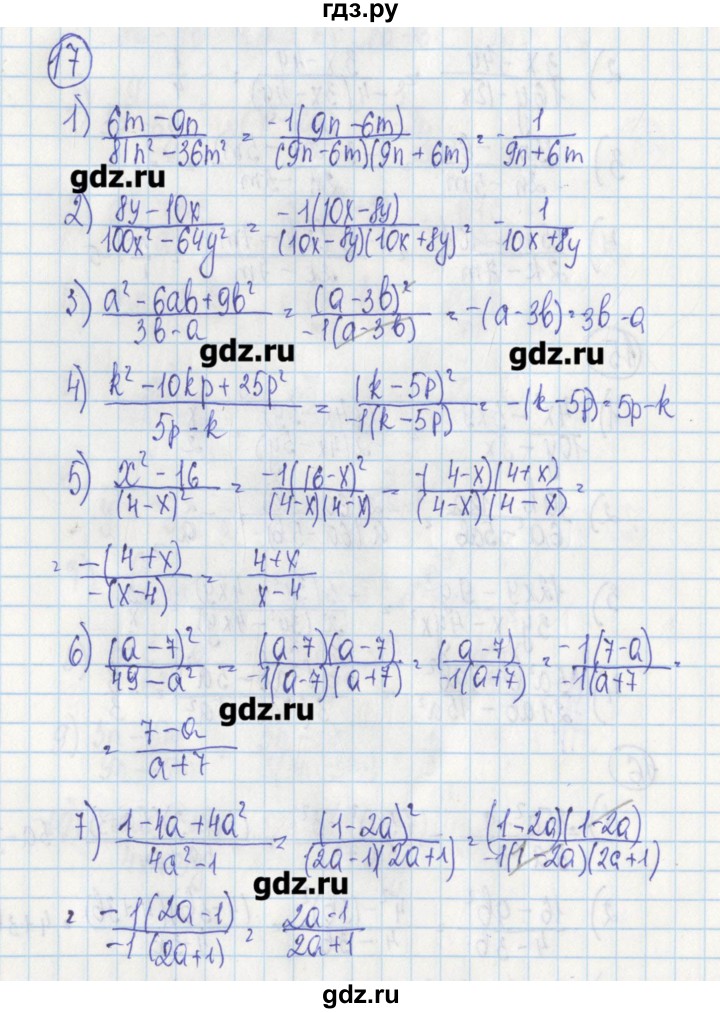 гдз.ру
17
1) (6m − 9n)/(81n² − 36m²) = (−1(9n − 6m))/((9n − 6m)(9n + 6m)) = − 1/(9n + 6m)
gdz.ru
2) (8y − 10x)/(100x² − 64y²) = (−1(10x − 8y))/((10x − 8y)(10x + 8y)) = − 1/(10x + 8y)
3) (a² − 6ab + 9b²)/(3b − a) = (a − 3b)²/(−1(a − 3b)) = −(a − 3b) = 3b − a
gdz.ru gdz.ru
4) (k² − 10kp + 25p²)/(5p − k) = (k − 5p)²/(−1(k − 5p)) = −(k − 5p) = 5p − k
5) (x² − 16)/(4 − x)² = (−1(16 − x)²)/((4 − x)(4 − x)) = (−(4 − x)(4 + x))/((4 − x)(4 − x)) =
= (−(4 + x))/(−(x − 4)) = (4 + x)/(x − 4)
6) (a − 7)²/(49 − a²) = ((a − 7)(a − 7))/(−1(a − 7)(a + 7)) = (a − 7)/(−1(a + 7)) = (−1(7 − a))/(−1(a + 7 =
gdz.ru
= (7 − a)/(a + 7)
7) (1 − 4a + 4a²)/(4a² − 1) = (1 − 2a)²/((2a − 1)(2a + 1)) = ((1 − 2a)(1 − 2a))/(−1(1 − 2a)(2a + 1))
gdz.ru
= (−1(2a − 1))/(−1(2a + 1)) = (2a − 1)/(2a + 1)
gdz.ru